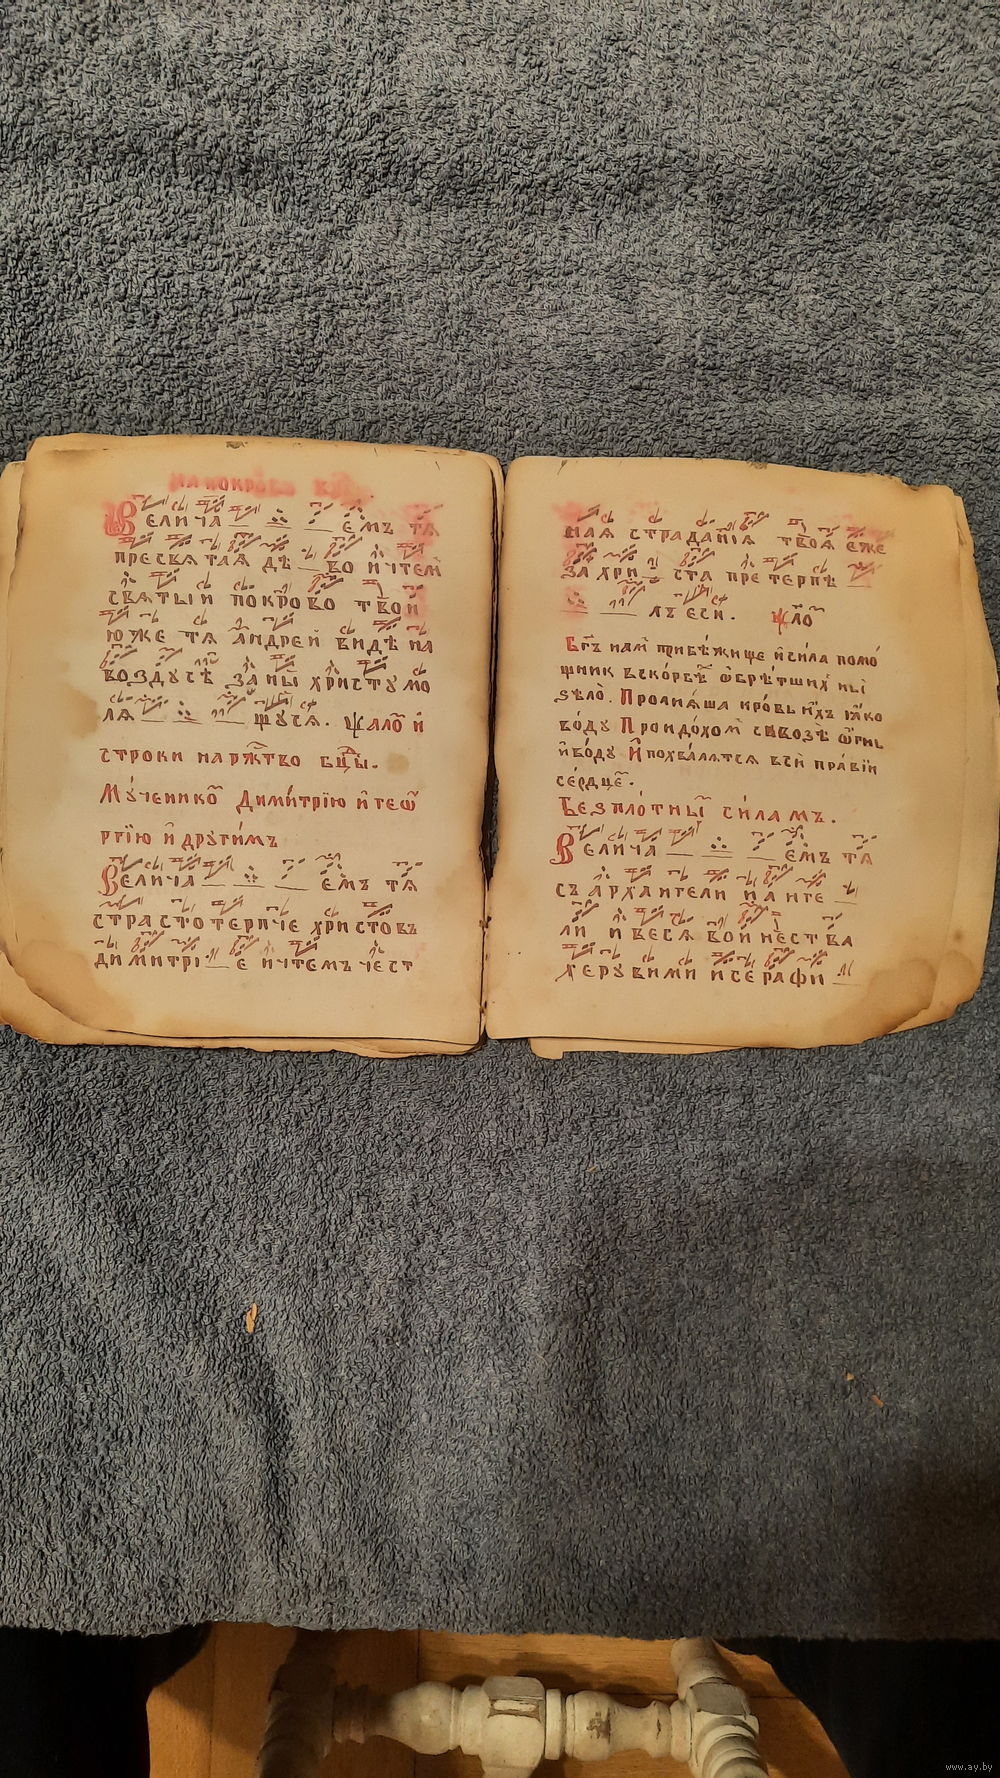 на покровъ
Велича емъ тѧ
пресвѧтаѧ дѣ во ичтем
свѧтыи покрово твои
юже тѧ андреи видѣ на
воздусѣ за ны христу мо
лѧ щусѧ. Ѱало и
строки на ржтво бцы.
Мученико Димитрїю и геѡ
ргїю и другимъ
Велича емъ тѧ
страстотерпче христовъ
димитрї е ичтемъ чест
наѧ страданїѧ твоѧ еже
за хри ста претерпѣ
лъ еси. ѱло
Бгъ нам прибѣжище и сила помо
щник вскорбѣ ѡбрѣтших ны
ѕѣло. Пролиѧша кровь ихъ ꙗко
воду Проидохом сквозѣ ѡгнь
и воду И похвалѧтсѧ вси правїи
сердце.
Безплотны силамъ.
Велича емъ тѧ
съ архангели и анге
ли и весѧ воинества
херувими и серафи
www.ay.by